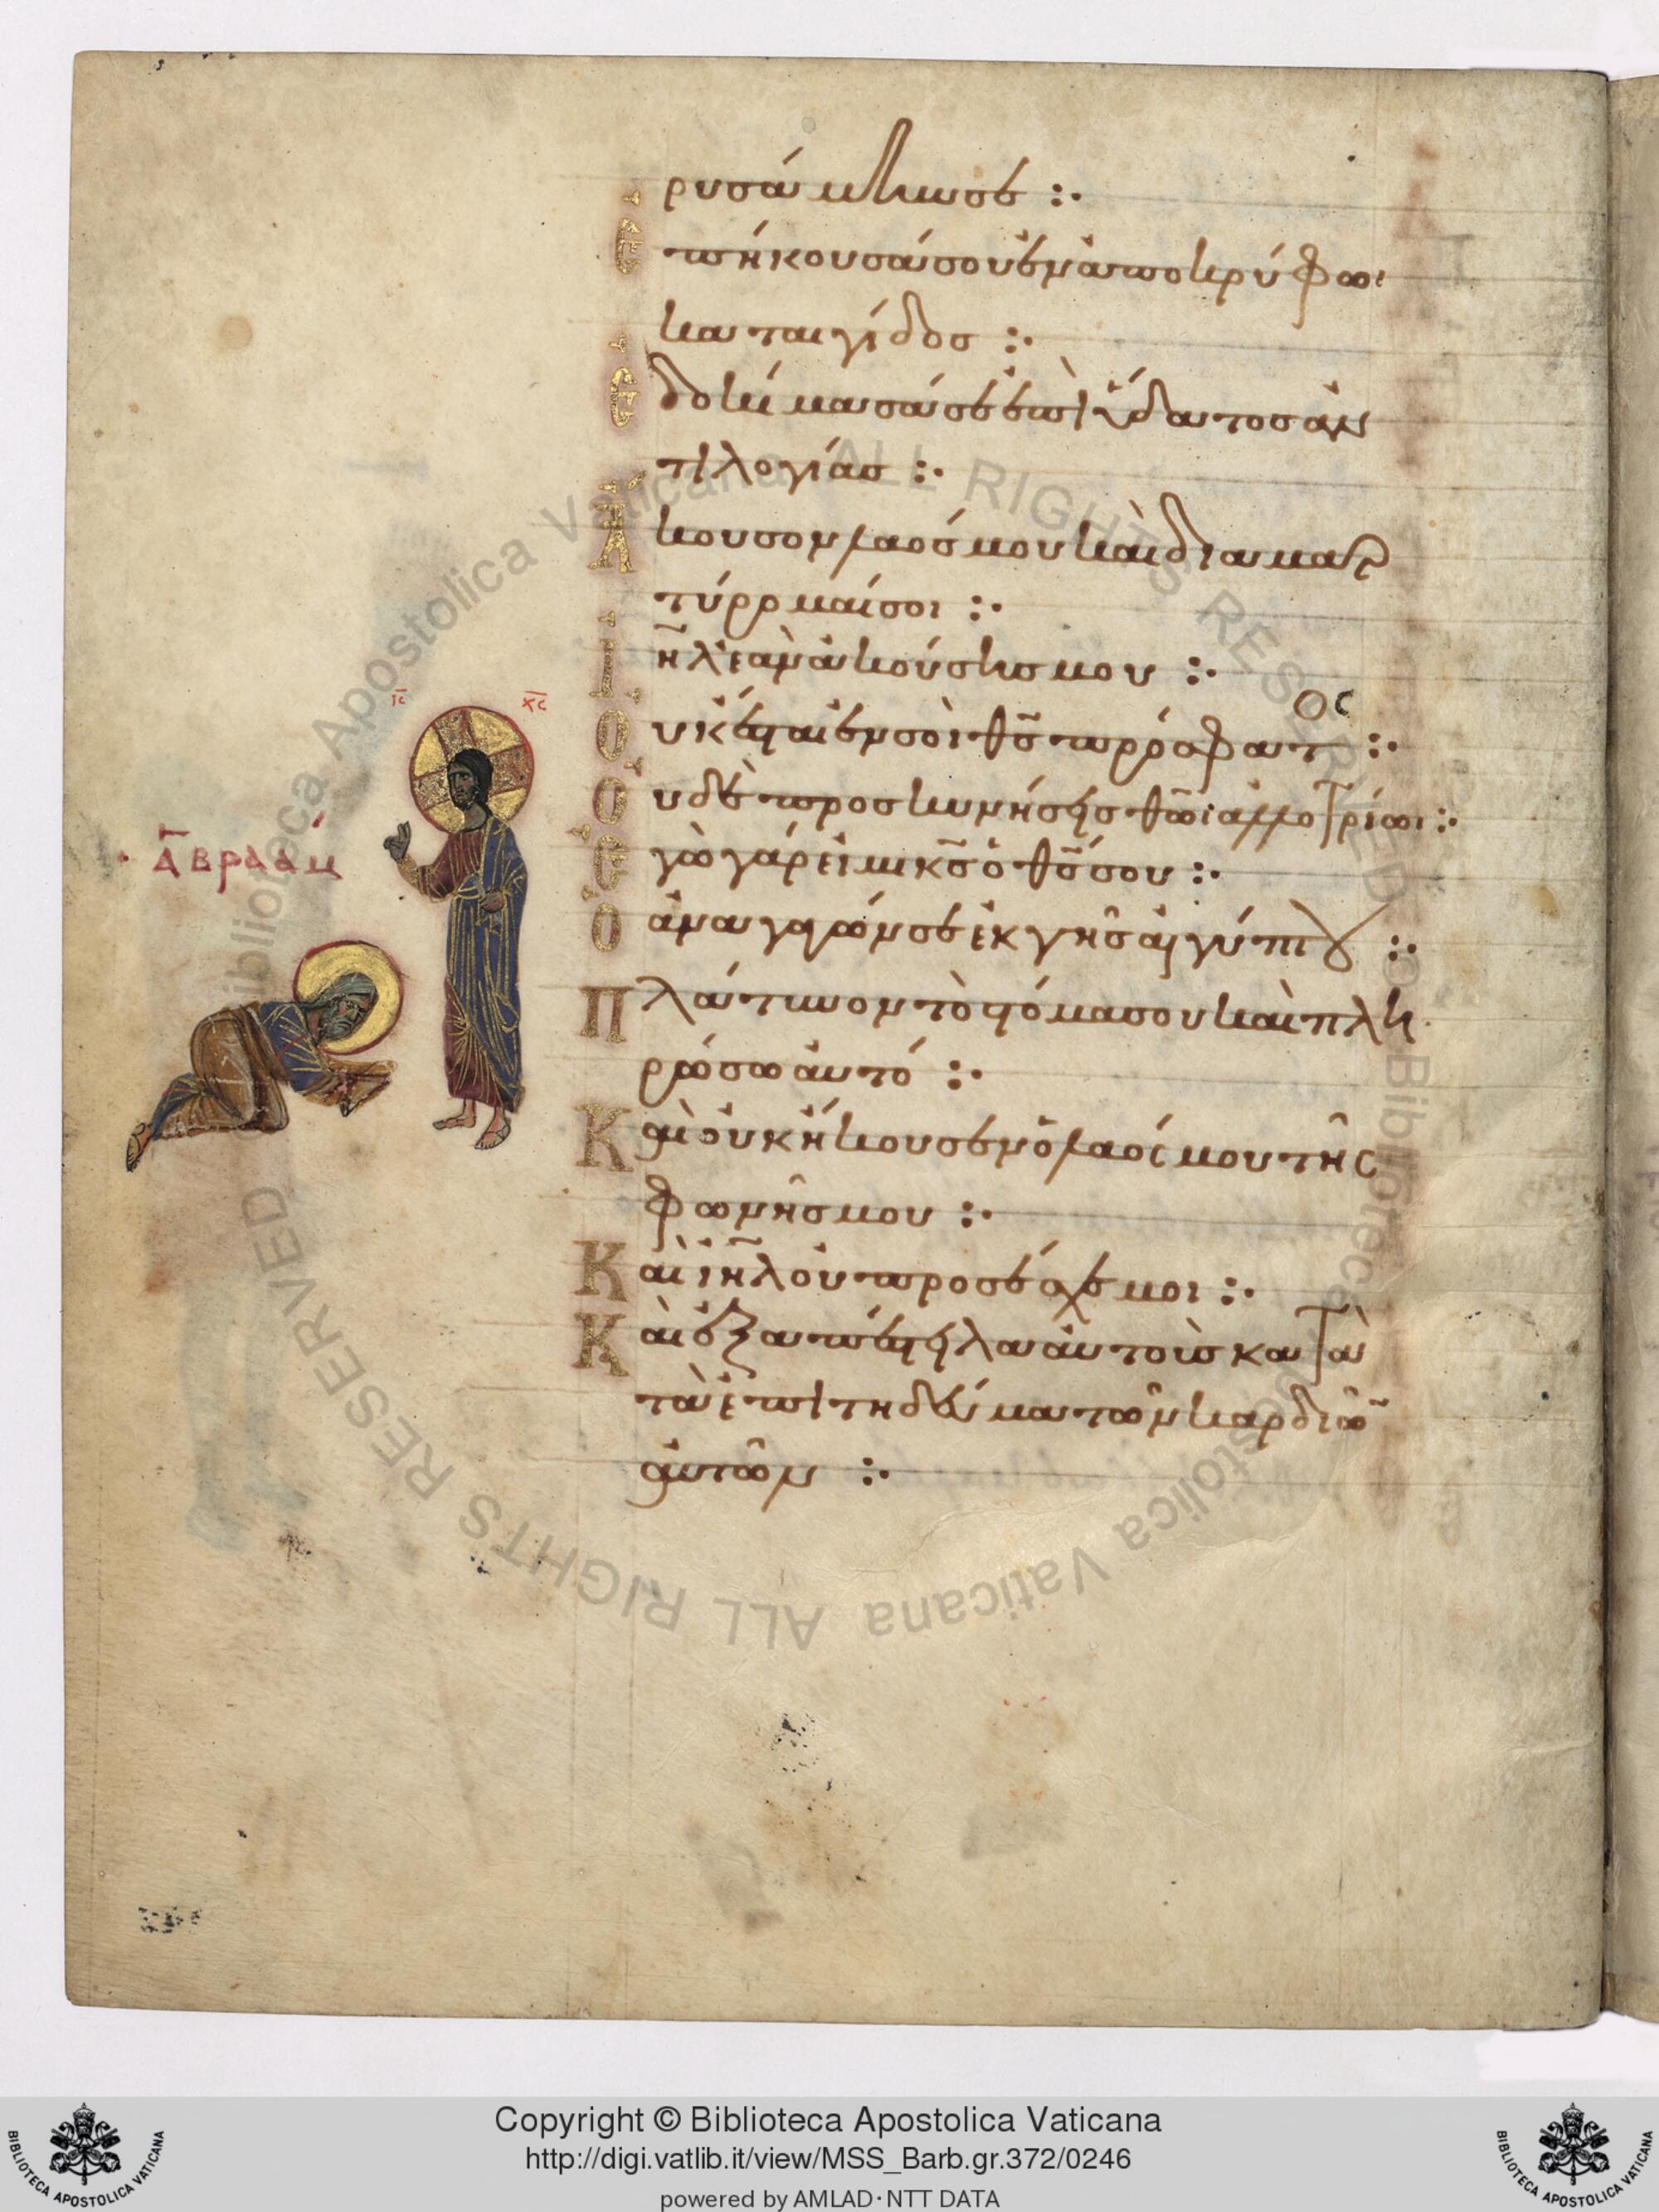 ρυσάμην σε :·
Ἐπήκουσά σου ἐν ἀποκρύφωι
καταιγίδος :·
Ἐδοκίμασά σε ἐπὶ ὕδατος ἀν
τιλογίας :·
Ἄκουσον λαός μου καὶ διαμαρ
τύρομαί σοι :·
Ἰη̄λ ἐὰν ἀκούσης μου :·
Οὐκ ἔσται ἐν σοὶ θς̄ πρόσφατος :·
Οὐδὲ προσκυνήσεις θω̄ι ἀλλοτρίωι :·
Ἐγὼ γάρ εἰμι κς̄ ὁ θς̄ σου :·
Ὁ ἀναγαγών σε ἐκ γῆς αἰγύπτου :·
Πλάτυνον τὸ στόμα σου καὶ πλη
ρώσω αὐτό :·
Καὶ οὐκ ἤκουσεν ὁ λαός μου τῆς
φωνῆς μου :·
Καὶ ἰη̄λ οὐ προσέσχε μοι :·
Καὶ ἐξαπέστειλα αὐτοὺς κατὰ
τὰ ἐπιτηδεύματα τῶν καρδιῶ̄
αὐτῶν :·
ῑς̄ χ̄ς̄
ἀβραάμ
Copyright © Biblioteca Apostolica Vaticana
http://digi.vatlib.it/view/MSS_Barb.gr.372/0246
powered by AMLAD·NTT DATA
BIBLIOTECA APOSTOLICA VATICANA
BIBLIOTECA APOSTOLICA VATICANA
Biblioteca Apostolica Vaticana ALL RIGHTS RESERVED
Biblioteca Apostolica Vaticana ALL RIGHTS RESERVED